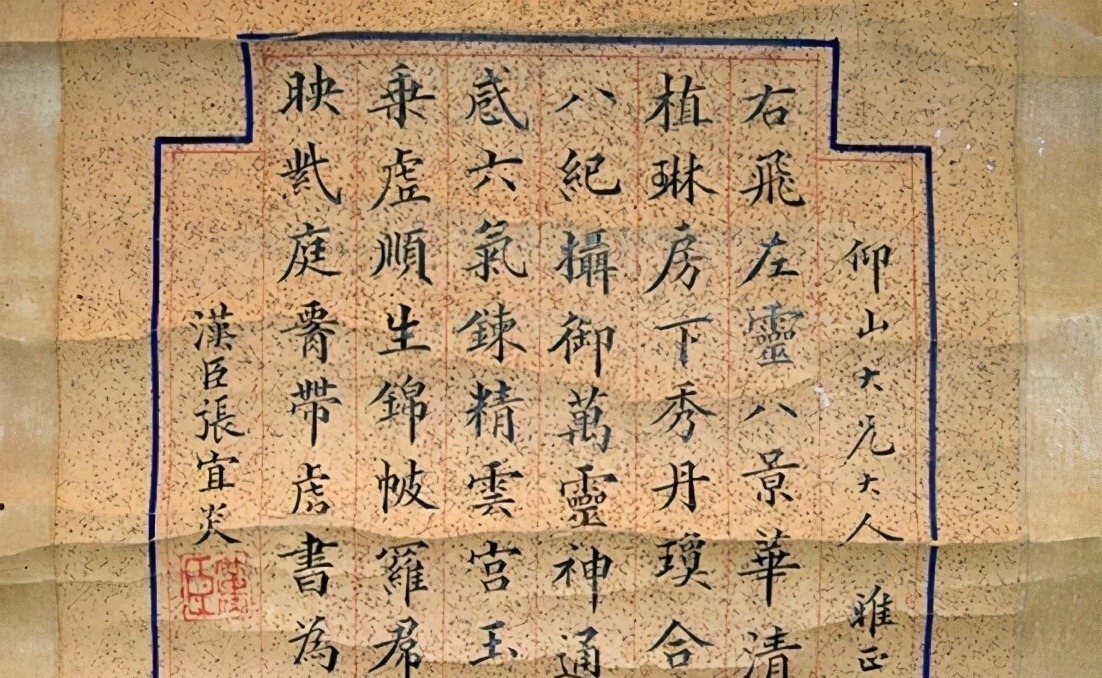 仰山大兄大人 雅正
右飛左靈八景華清
植琳房下秀丹瓊合
八紀攝御萬靈神通
感六氣鍊精雲宮玉
乗虛順生錦帔羅帬
映紫庭帶虎書為
漢臣張宜炎
漢臣